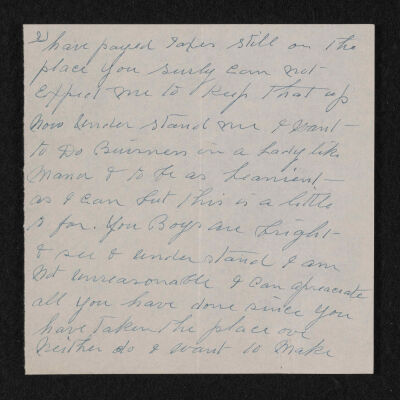 2)
have payed Taxes still on the
place You surly Can not
Expect me to Keep that up
Now Under stand me I want
to Do Buisness in a Lady like
Mana & to be as Leanient
as I Can but this is a little
to far. You Boys are bright
& see & under stand I am
Not unreasonable I Can apreaciate
all you have done since you
have Taken the place ove
Neither do I want to Make